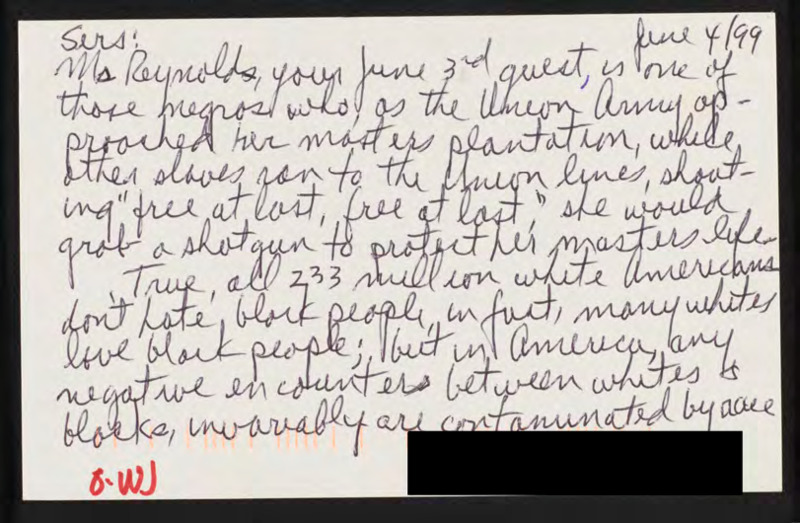 Sers: June 4/99
Ms Reynolds, your June 3rd guest, is one of
those negros who, as the Union Army ap-
proached her masters plantation, while
other slaves ran to the Union lines, shout-
ing "free at last, free at last," she would
grab a shotgun to protect her masters life.
True, all 233 million white Americans
don't hate black people, in fact, many whites
love black people; but in America, any
negative encounters between whites &
blacks, invariably are contaminated by race